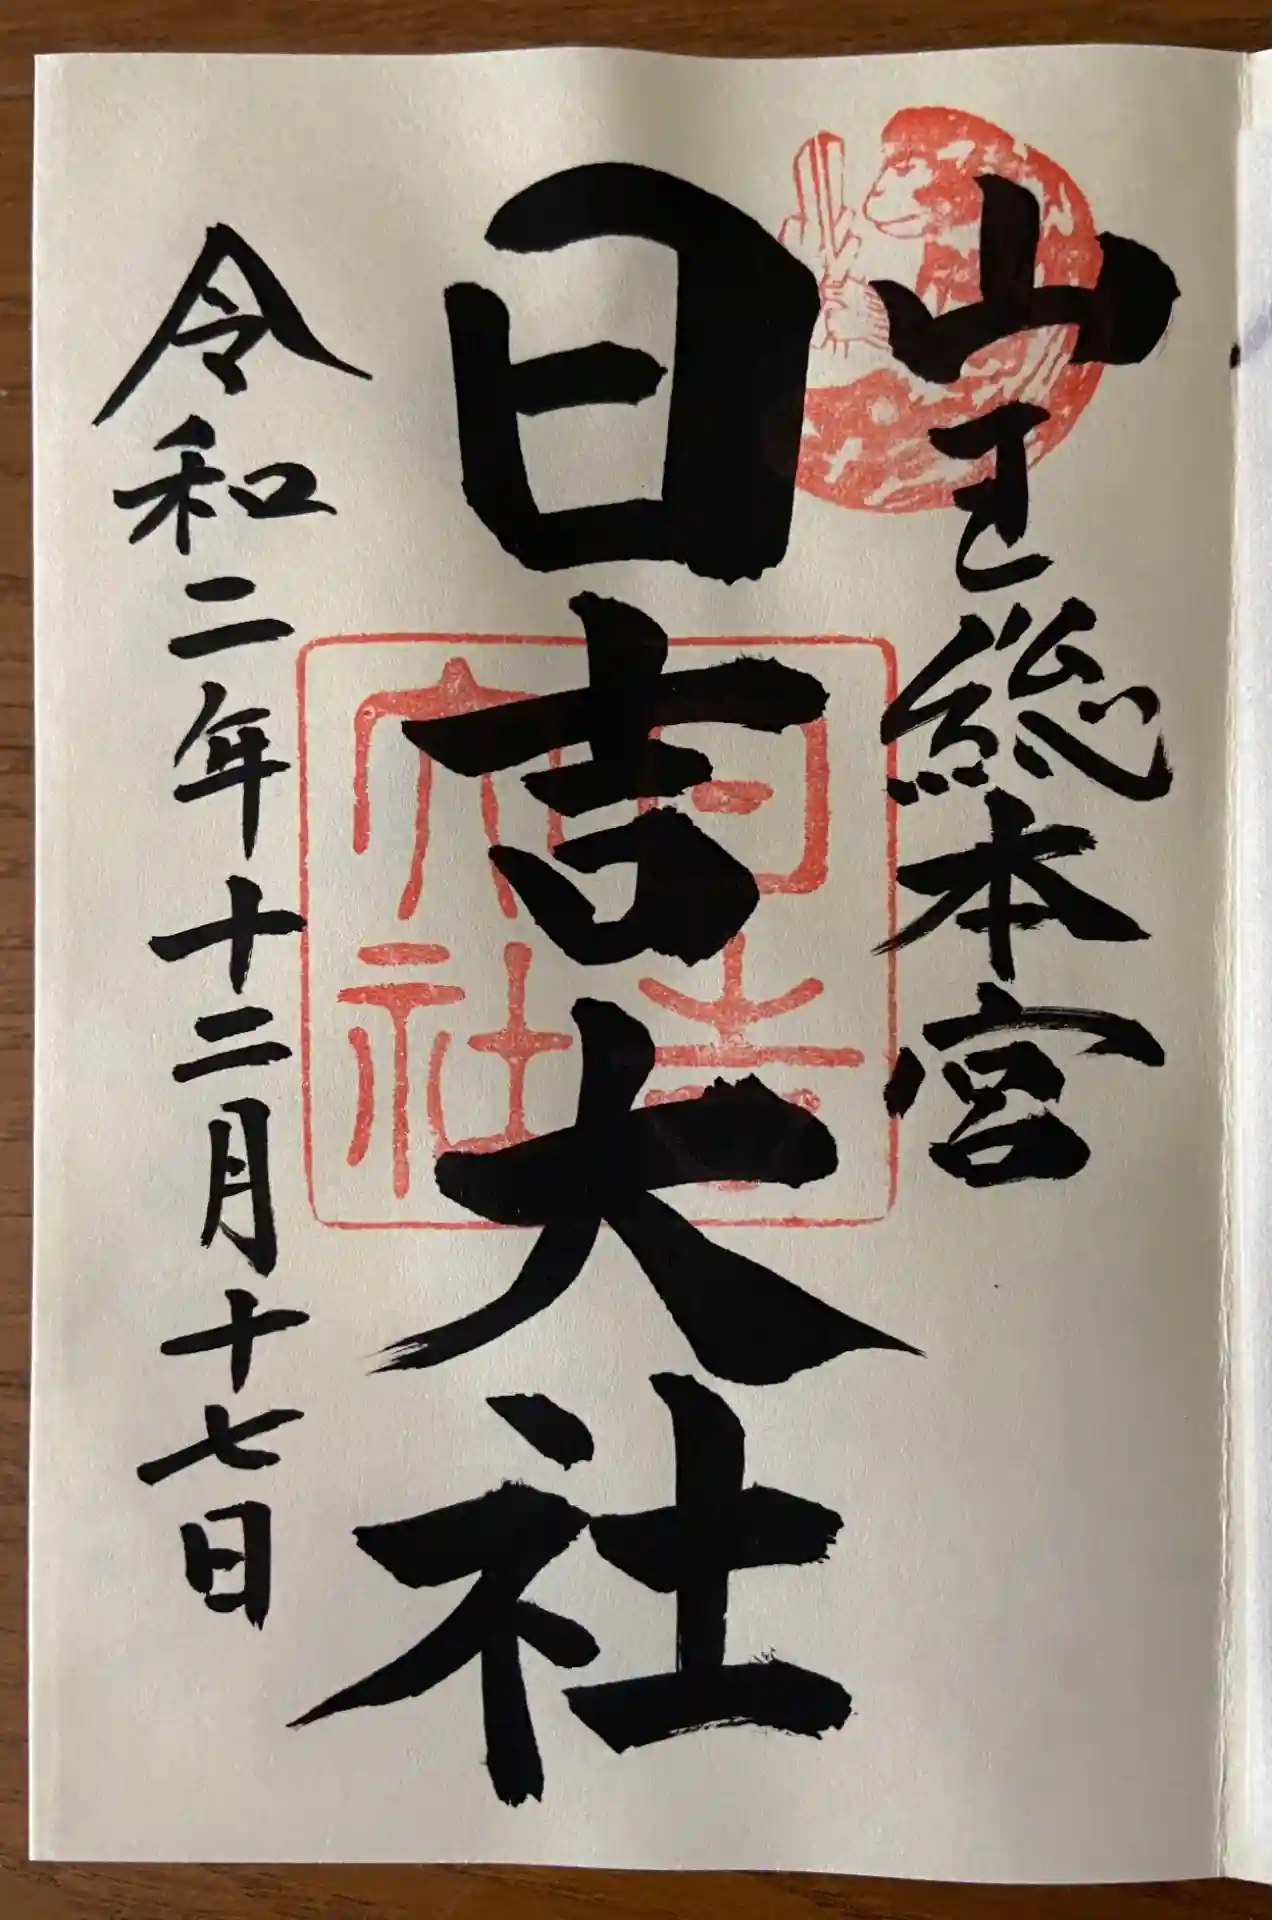 山王総本宮
日吉大社
日吉
大社
令和二年十二月十七日